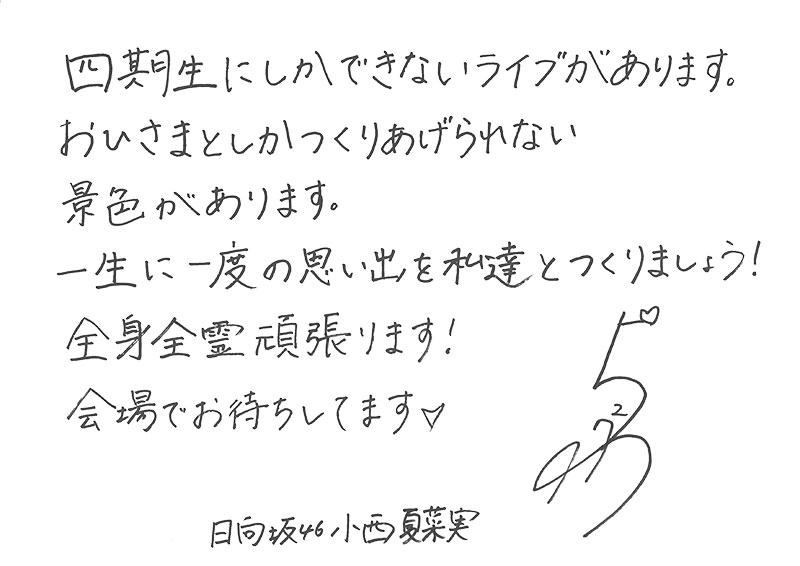 四期生にしかできないライブがあります。
おひさまとしかつくりあげられない
景色があります。
一生に一度の思い出を私達とつくりましょう!
全身全霊頑張ります!
会場でお待ちしてます♡
日向坂46 小西夏菜実